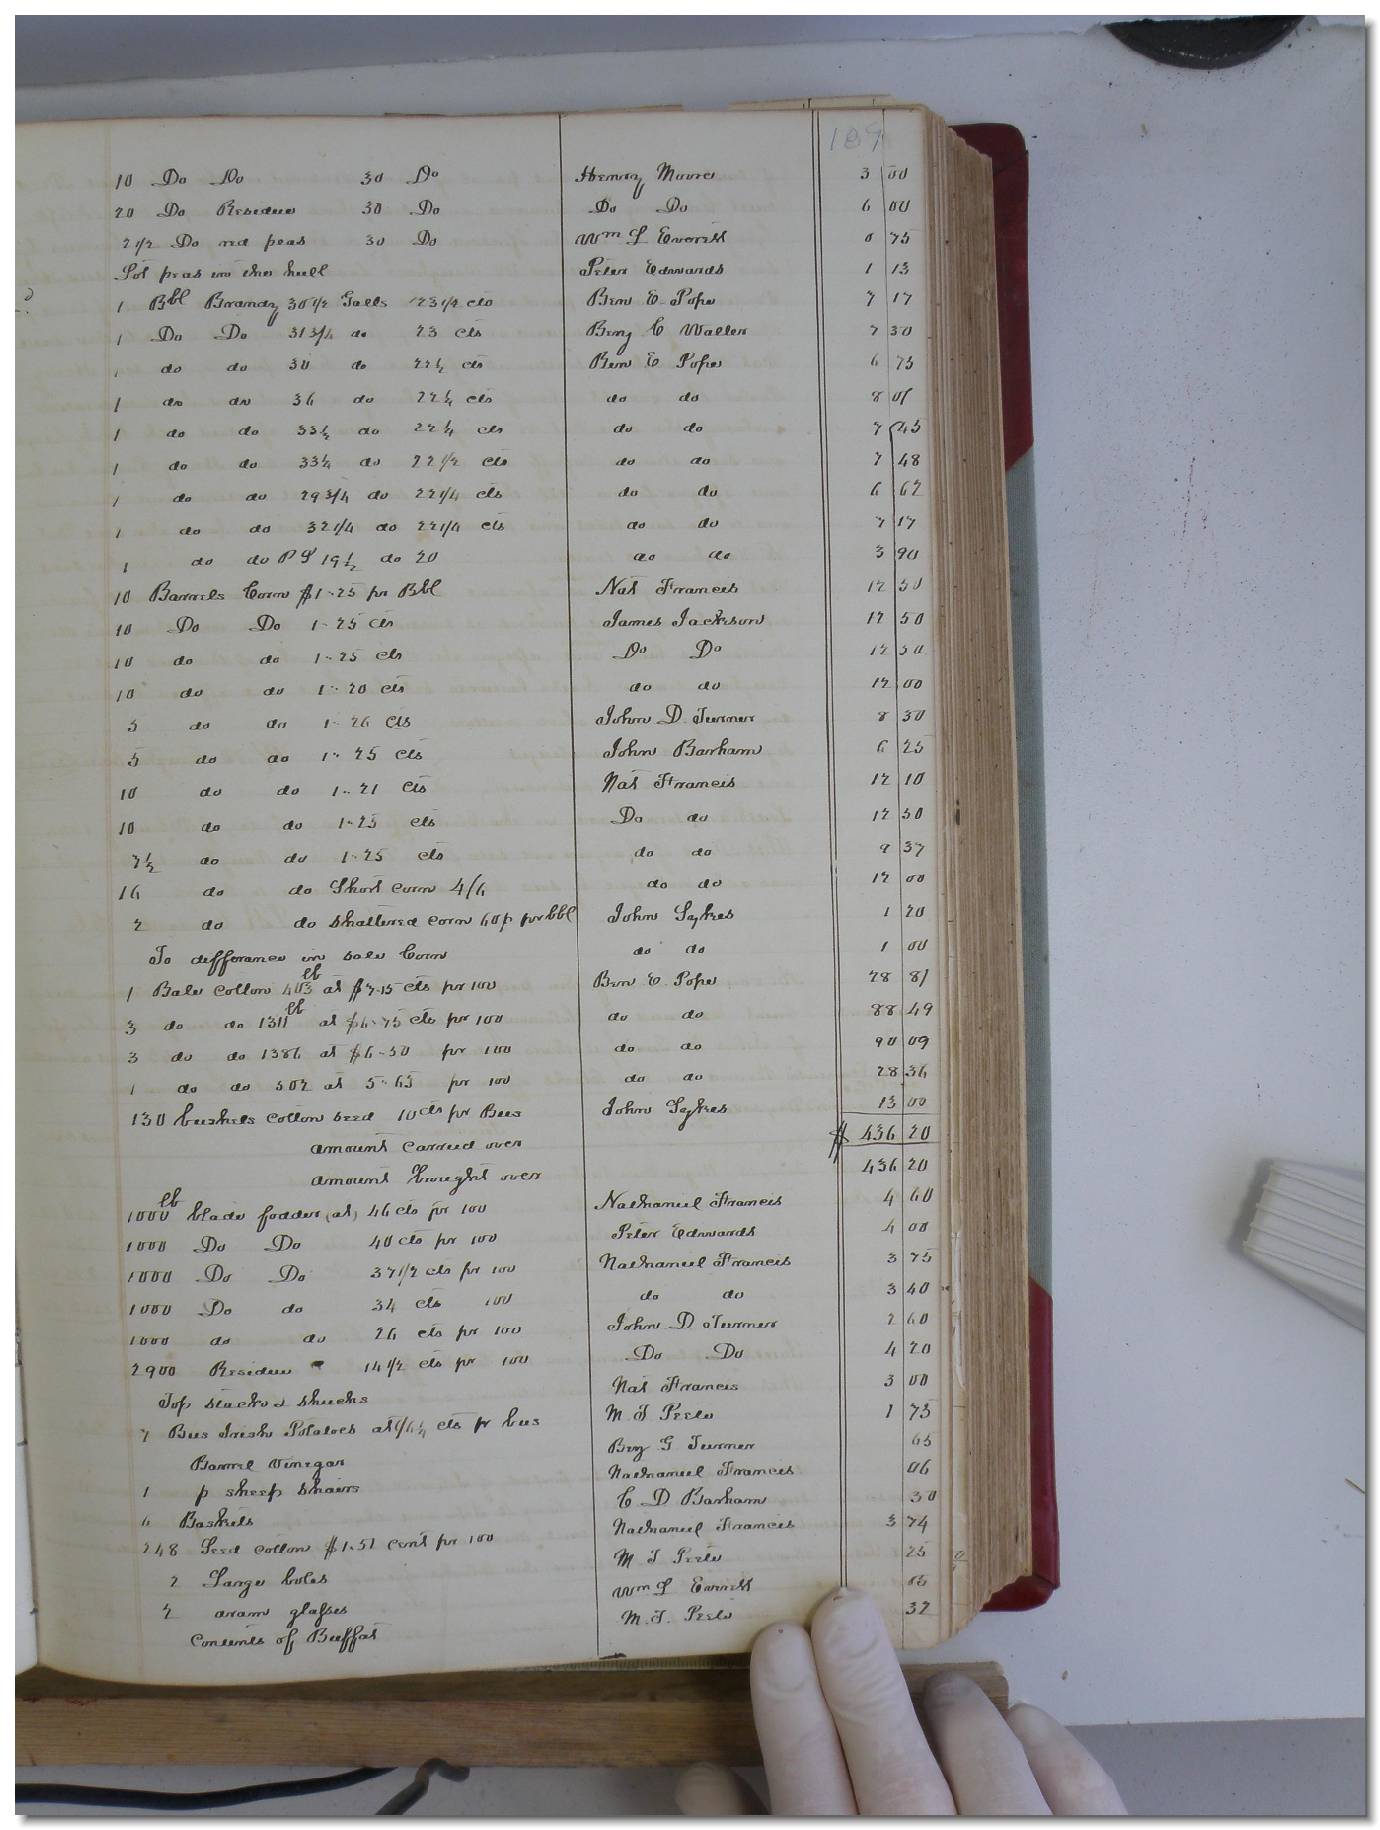 189
10 Do Do 30 Do Henry Moore 3 00
20 Do Residue 30 Do Do Do 6 00
2 1/2 Do red peas 30 Do Wm L Everitt 0 75
Lot peas in the hull Peter Edwards 1 13
1 Bbl Brandy 30 1/2 Galls 23 1/2 cts Ben E Pope 7 17
1 Do Do 31 3/4 do 23 cts Benj C Waller 7 30
1 do do 30 do 22 1/2 cts Ben E Pope 6 75
1 do do 36 do 22 1/4 cts do do 8 01
1 do do 33 1/2 do 22 1/4 cts do do 7 45
1 do do 33 1/4 do 22 1/2 cts do do 7 48
1 do do 29 3/4 do 22 1/4 cts do do 6 62
1 do do 32 1/4 do 22 1/4 cts do do 7 17
1 do do 19 1/2 do 20 do do 3 90
10 Barrels Corn $1-25 pr Bbl Nat Francis 12 50
10 Do Do 1-25 cts James Jackson 12 50
10 do do 1-25 cts Do Do 12 50
10 do do 1-20 cts do do 12 00
5 do do 1-26 cts John D. Turner 8 30
5 do do 1-25 cts John Barham 6 25
10 do do 1-21 cts Nat Francis 12 10
10 do do 1-25 cts Do do 12 50
7 1/2 do do 1-25 cts do do 9 37
16 do do Short corn 4/6 do do 12 00
2 do do shattered corn 60p pr bbl John Sykes 1 20
To differance in sale Corn do do 1 00
1 Bale cotton 403 lb at $7.15 cts pr 100 Ben E. Pope 28 81
3 do do 1311 lb at $6-75 cts pr 100 do do 88 49
3 do do 1386 at $6-50 pr 100 do do 90 09
1 do do 502 at 5-65 pr 100 do do 28 36
130 bushels cotton seed 10 cts pr Bus John Sykes 13 00
amount carried over $ 436 20
amount brought over 436 20
1000 lb blade fodder (at) 46 cts pr 100 Nathaniel Francis 4 60
1000 Do Do 40 cts pr 100 Peter Edwards 4 00
1000 Do Do 37 1/2 cts pr 100 Nathaniel Francis 3 75
1000 Do do 34 cts 100 do do 3 40
1000 do do 26 cts pr 100 John D Turner 2 60
2900 Residue 14 1/2 cts pr 100 Do Do 4 20
Top stacks & shucks Nat Francis 3 00
7 Bus Irish Potatoes at cts pr bus M. T Peele 1 75
Barrel Vinegar Benj G Turner 65
1 p sheep shairs Nathaniel Francis 06
6 Baskets C D Barham 30
248 Seed cotton $1.51 cent pr 100 Nathaniel Francis 3 74
2 Large boles M T Peele 25
2 dram glasses Wm L Everitt 05
Contents of Buffat M. T. Peele 32